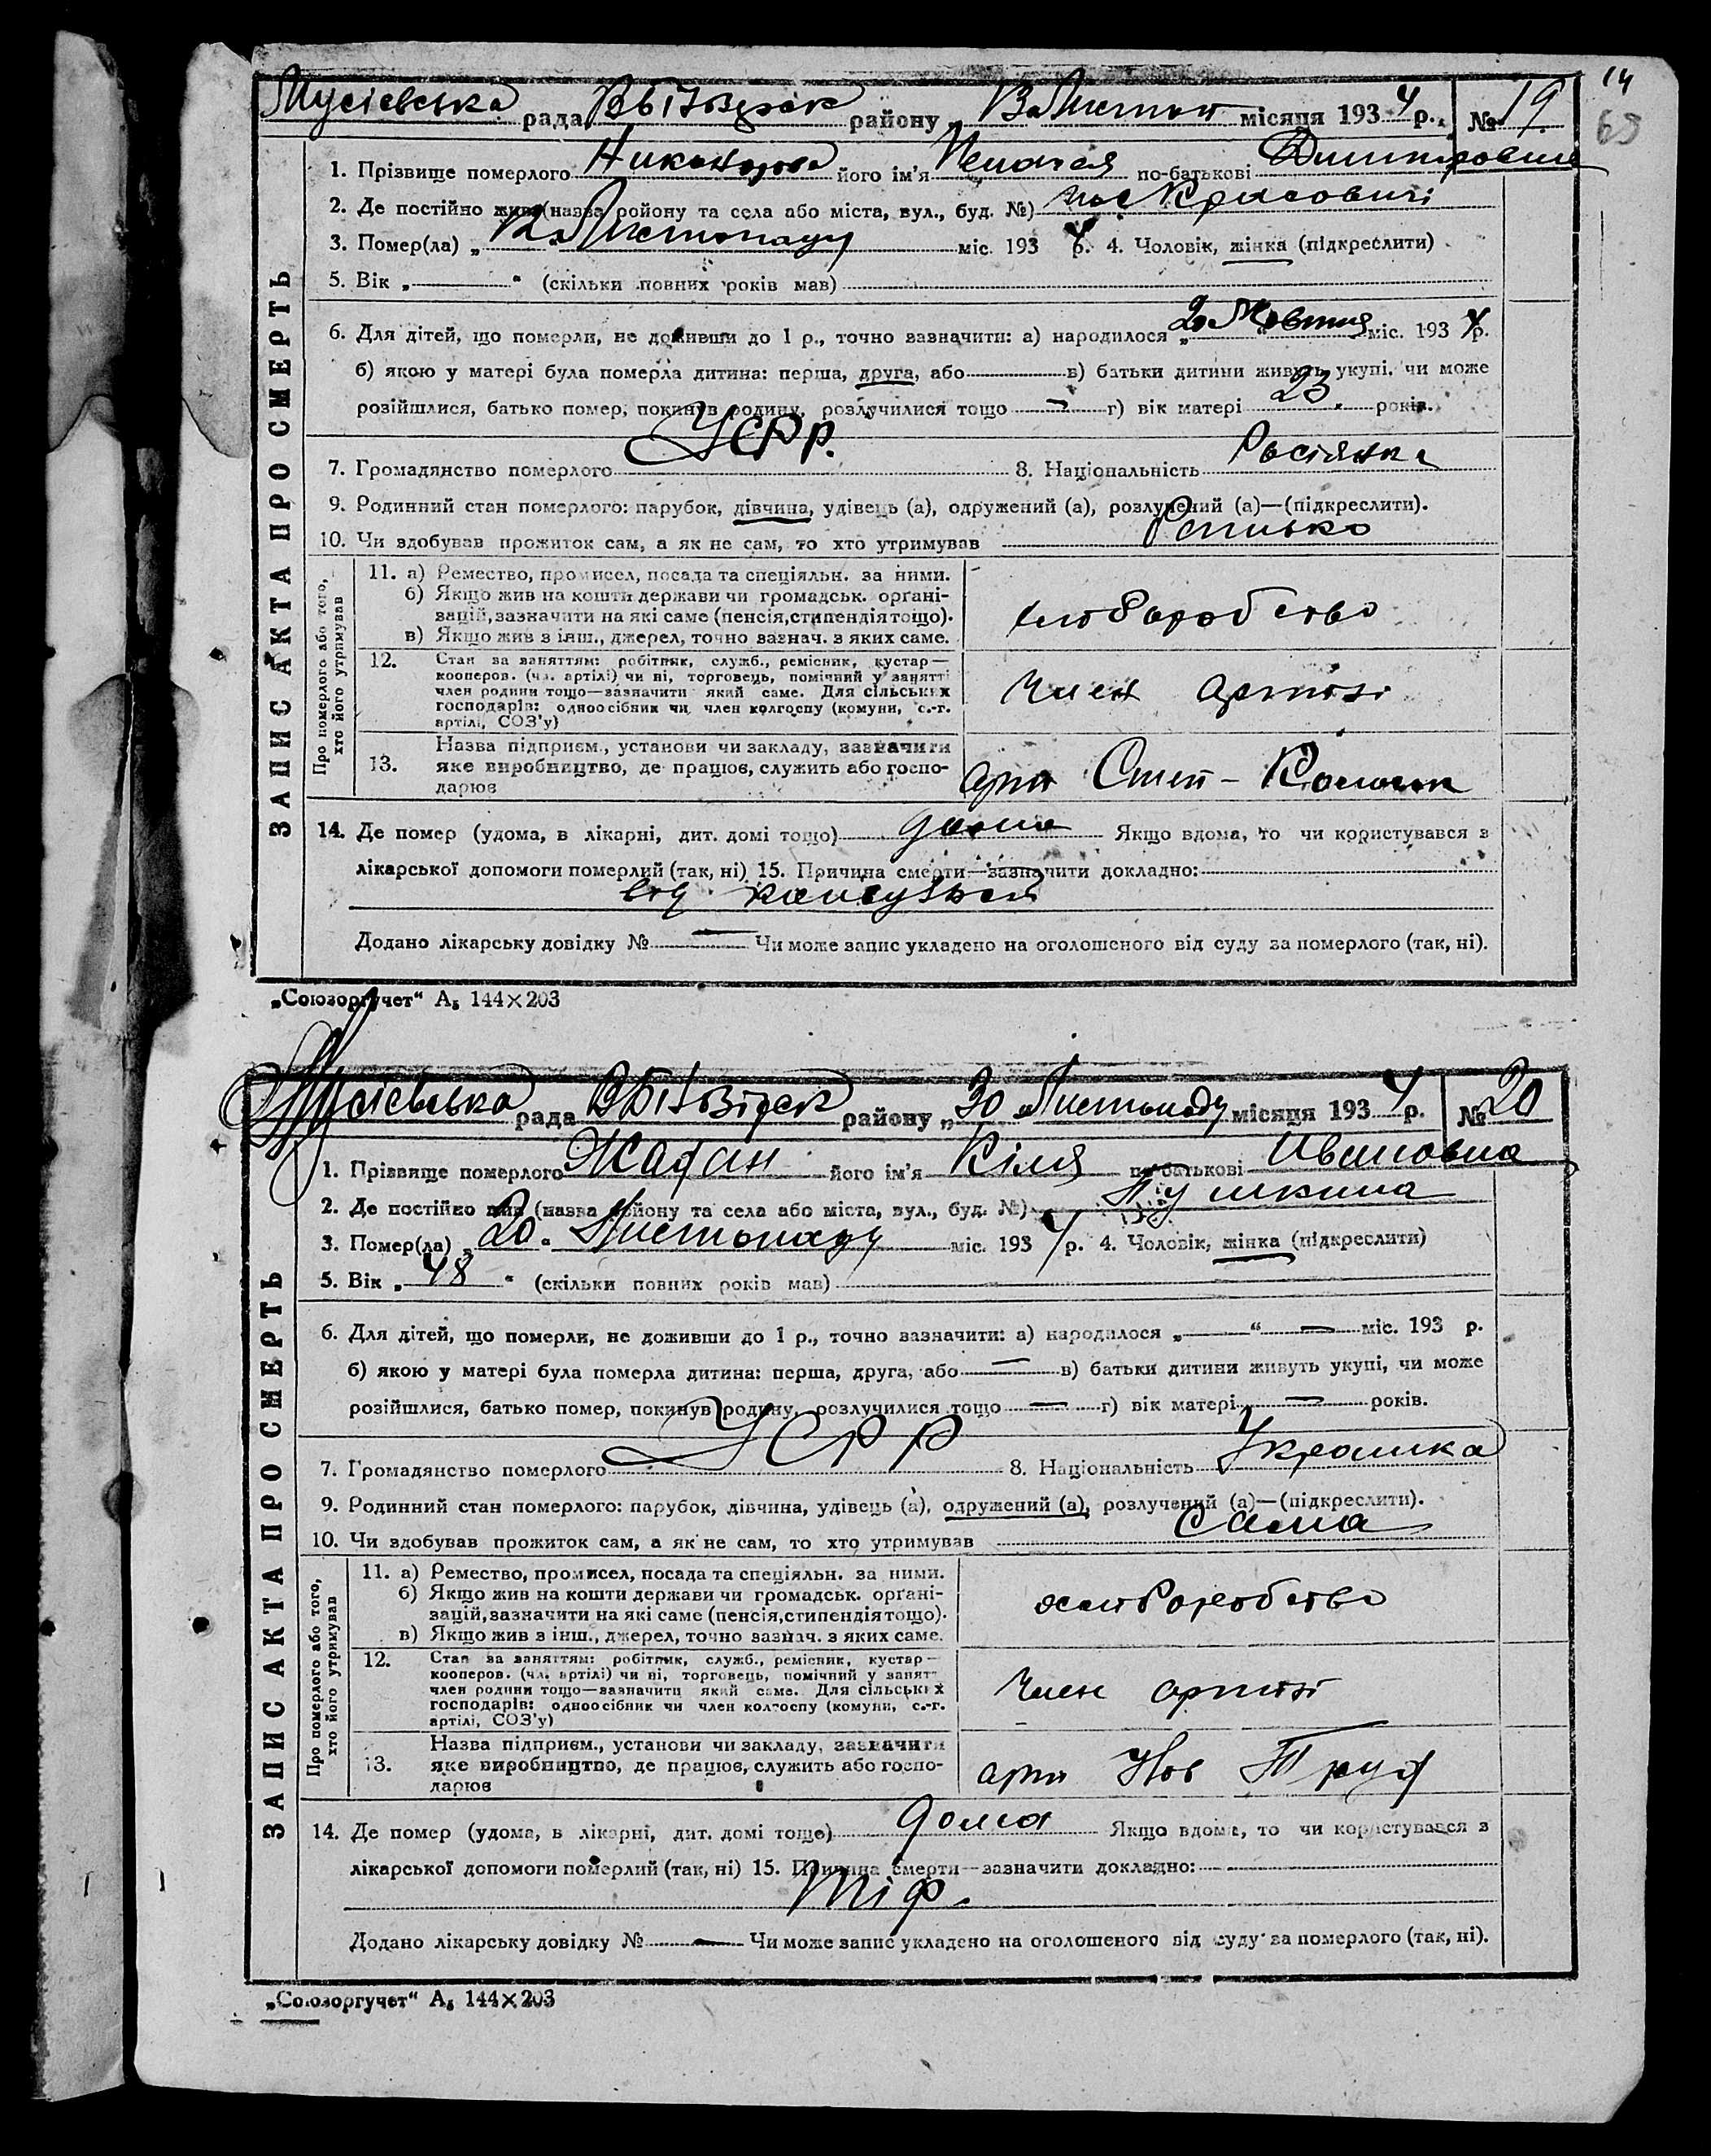 14
63
Мусіевська рада района місяця 1934 р. № 19
ЗАПИС АКТА ПРО СМЕРТЬ
1. Прізвище померлого його ім'я по-батькові
2. Де постійно жив (назва району та села або міста, вул., буд. №)
3. Помер(ла) „ Листопаду міс. 1934 р. 4. Чоловік, жінка (підкреслити)
5. Вік „ “ (скільки повних років мав)
6. Для дітей, що померли, не доживши до 1 р., точно зазначити: а) народилося „ Жовтня міс. 1934 р.
б) якою у матері була померла дитина: перша, друга, або в) батьки дитини живуть укупі, чи може
розійшлися, батько помер, покинув родину, розлучилися тощо — г) вік матері 23 років.
7. Громадянство померлого УСРР. 8. Національність Росіянка
9. Родинний стан померлого: парубок, дівчина, удівець (а), одружений (а), розлучений (а)—(підкреслити).
10. Чи здобував прожиток сам, а як не сам, то хто утримував
Про померлого або того, хто його утримував
11. а) Ремество, промисел, посада та спеціяльн. за ними.
б) Якщо жив на кошти держави чи громадськ. органі-
зацій, зазначити на які саме (пенсія, стипендія тощо).
в) Якщо жив з інш., джерел, точно зазнач. з яких саме.
хліборобство
12. Стан за заняттям: робітник, служб., ремісник, кустар—
кооперов. (чл. артілі) чи ні, торговець, помічний у занятті
член родини тощо—зазначити який саме. Для сільських
господарів: одноосібник чи член колгоспу (комуни, с.-г.
артілі, СОЗ'у)
член артілі
13. Назва підприєм., установи чи закладу, зазначити
яке виробництво, де працює, служить або госпо-
дарює
арт
14. Де помер (удома, в лікарні, дит. домі тощо) дома Якщо вдома, то чи користувався з
лікарської допомоги померлий (так, ні) 15. Причина смерти—зазначити докладно:
від
Додано лікарську довідку № — Чи може запис укладено на оголошеного від суду за померлого (так, ні).
„Союзоргучет“ А₅ 144×203
Мусієвська рада району „30“ Листопаду місяця 1934 р. № 20
ЗАПИС АКТА ПРО СМЕРТЬ
1. Прізвище померлого Жадан його ім'я Кіля по-батькові Ивановна
2. Де постійно жив (назва району та села або міста, вул., буд. №)
3. Помер(ла) „20“ Листопаду міс. 1934 р. 4. Чоловік, жінка (підкреслити)
5. Вік „48“ (скільки повних років мав)
6. Для дітей, що померли, не доживши до 1 р., точно зазначити: а) народилося „—“ — міс. 193 р.
б) якою у матері була померла дитина: перша, друга, або — в) батьки дитини живуть укупі, чи може
розійшлися, батько помер, покинув родину, розлучилися тощо — г) вік матері — років.
7. Громадянство померлого УСРР 8. Національність Українка
9. Родинний стан померлого: парубок, дівчина, удівець (а), одружений (а), розлучений (а)—(підкреслити).
10. Чи здобував прожиток сам, а як не сам, то хто утримував Сама
Про померлого або того, хто його утримував
11. а) Ремество, промисел, посада та спеціяльн. за ними.
б) Якщо жив на кошти держави чи громадськ. органі-
зацій, зазначити на які саме (пенсія, стипендія тощо).
в) Якщо жив з інш., джерел, точно зазнач. з яких саме.
хліборобство
12. Стан за заняттям: робітник, служб., ремісник, кустар—
кооперов. (чл. артілі) чи ні, торговець, помічний у занятт
член родини тощо—зазначити який саме. Для сільських
господарів: одноосібник чи член колгоспу (комуни, с.-г.
артілі, СОЗ'у)
член артілі
13. Назва підприєм., установи чи закладу, зазначити
яке виробництво, де працює, служить або госпо-
дарює
арт Нов Труд
14. Де помер (удома, в лікарні, дит. домі тощо) дома Якщо вдома, то чи користувався з
лікарської допомоги померлий (так, ні) 15. Причина смерти—зазначити докладно:
тіф.
Додано лікарську довідку № — Чи може запис укладено на оголошеного від суду за померлого (так, ні).
„Союзоргучет“ А₅ 144×203